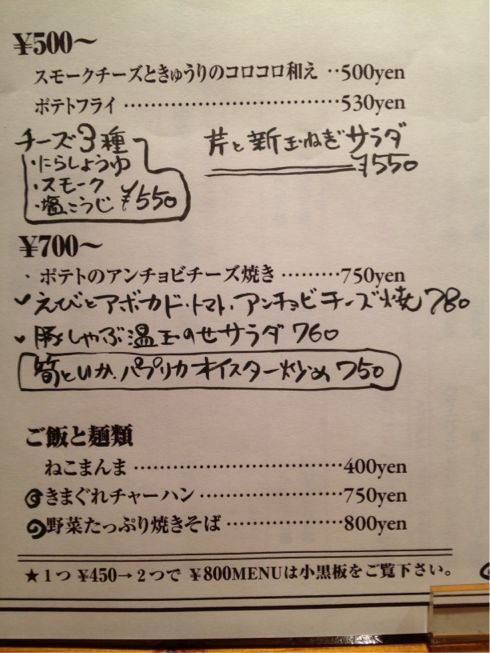 ¥500～
スモークチーズときゅうりのコロコロ和え ‥500yen
ポテトフライ ……………………… 530yen
チーズ3種
・にらしょうゆ
・スモーク
・塩こうじ ¥550
芹と新玉ねぎサラダ
¥550
¥700～
・ ポテトのアンチョビチーズ焼き ………750yen
✓ えびとアボカド・トマト、アンチョビチーズ焼 780
✓ 豚しゃぶ温玉のせサラダ 760
筍といか、パプリカオイスター炒め 750
ご飯と麺類
ねこまんま ……………………… 400yen
きまぐれチャーハン ……………… 750yen
野菜たっぷり焼きそば …………… 800yen
★1つ ¥450→2つで ¥800MENUは小黒板をご覧下さい。